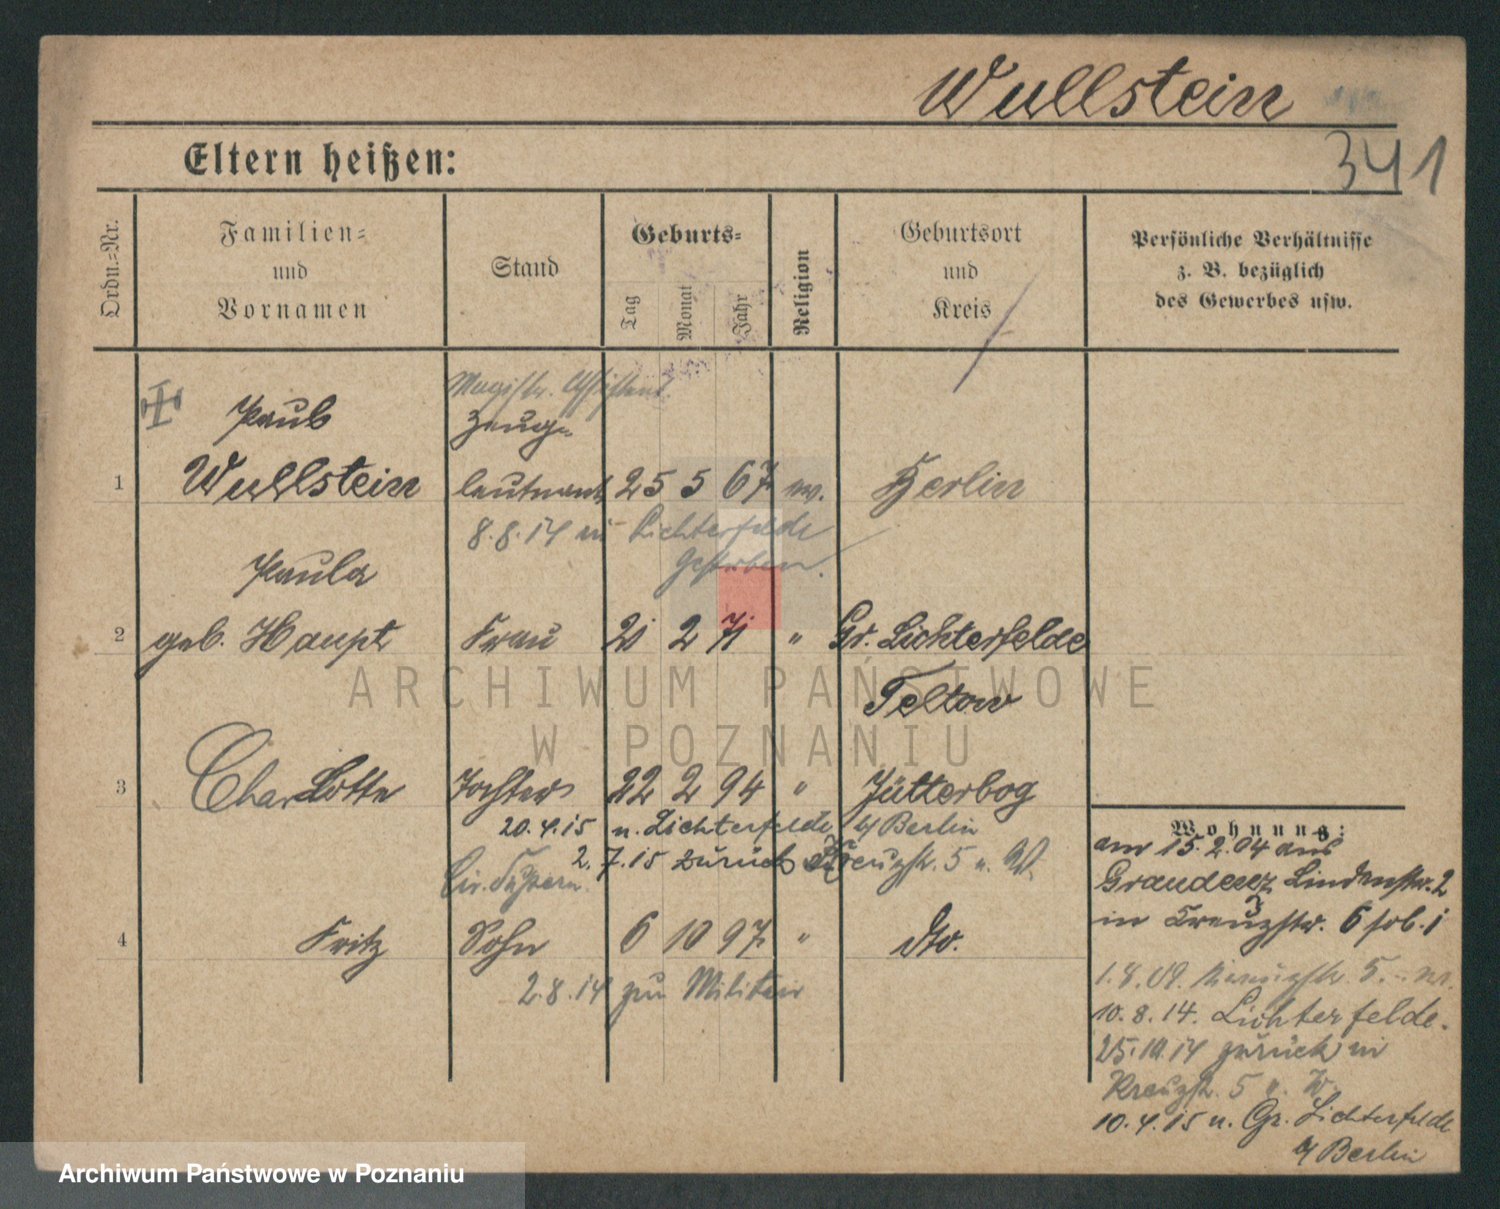 Wullstein
341
Eltern heißen:
Ordn.=Nr.
Familien=
und
Vornamen
Stand
Geburts=
Tag
Monat
Jahr
Religion
Geburtsort
und
Kreis
Persönliche Verhältnisse
z. B. bezüglich
des Gewerbes usw.
Magistr. Assistent
Paul Zeug=
1 Wullstein leutnant 25 5 67 ev. Berlin
8.8.14 in Lichterfelde
gestorben.
Paula
2 geb. Haupt Frau 21 2 71 " Gr. Lichterfelde
Teltow
3 Charlotte Tochter 22 2 94 " Jütterbog
20.4.15 n. Lichterfelde b/ Berlin
2.7.15 zurück Kreuzstr. 5 u. W.
4 Fritz Sohn 6 10 97 " dto.
2.8.14 zum Militär
Wohnung:
am 15.2.04 aus
Graudenz Lindenstr. 2
in Kreuzstr. 6
Kreuzstr. 5
10.8.14. Lichterfelde.
25.10.14 zurück in
Kreuzstr. 5 u. W.
10.4.15 n. Gr. Lichterfelde
b/ Berlin
ARCHIWUM PAŃSTWOWE
W POZNANIU
Archiwum Państwowe w Poznaniu